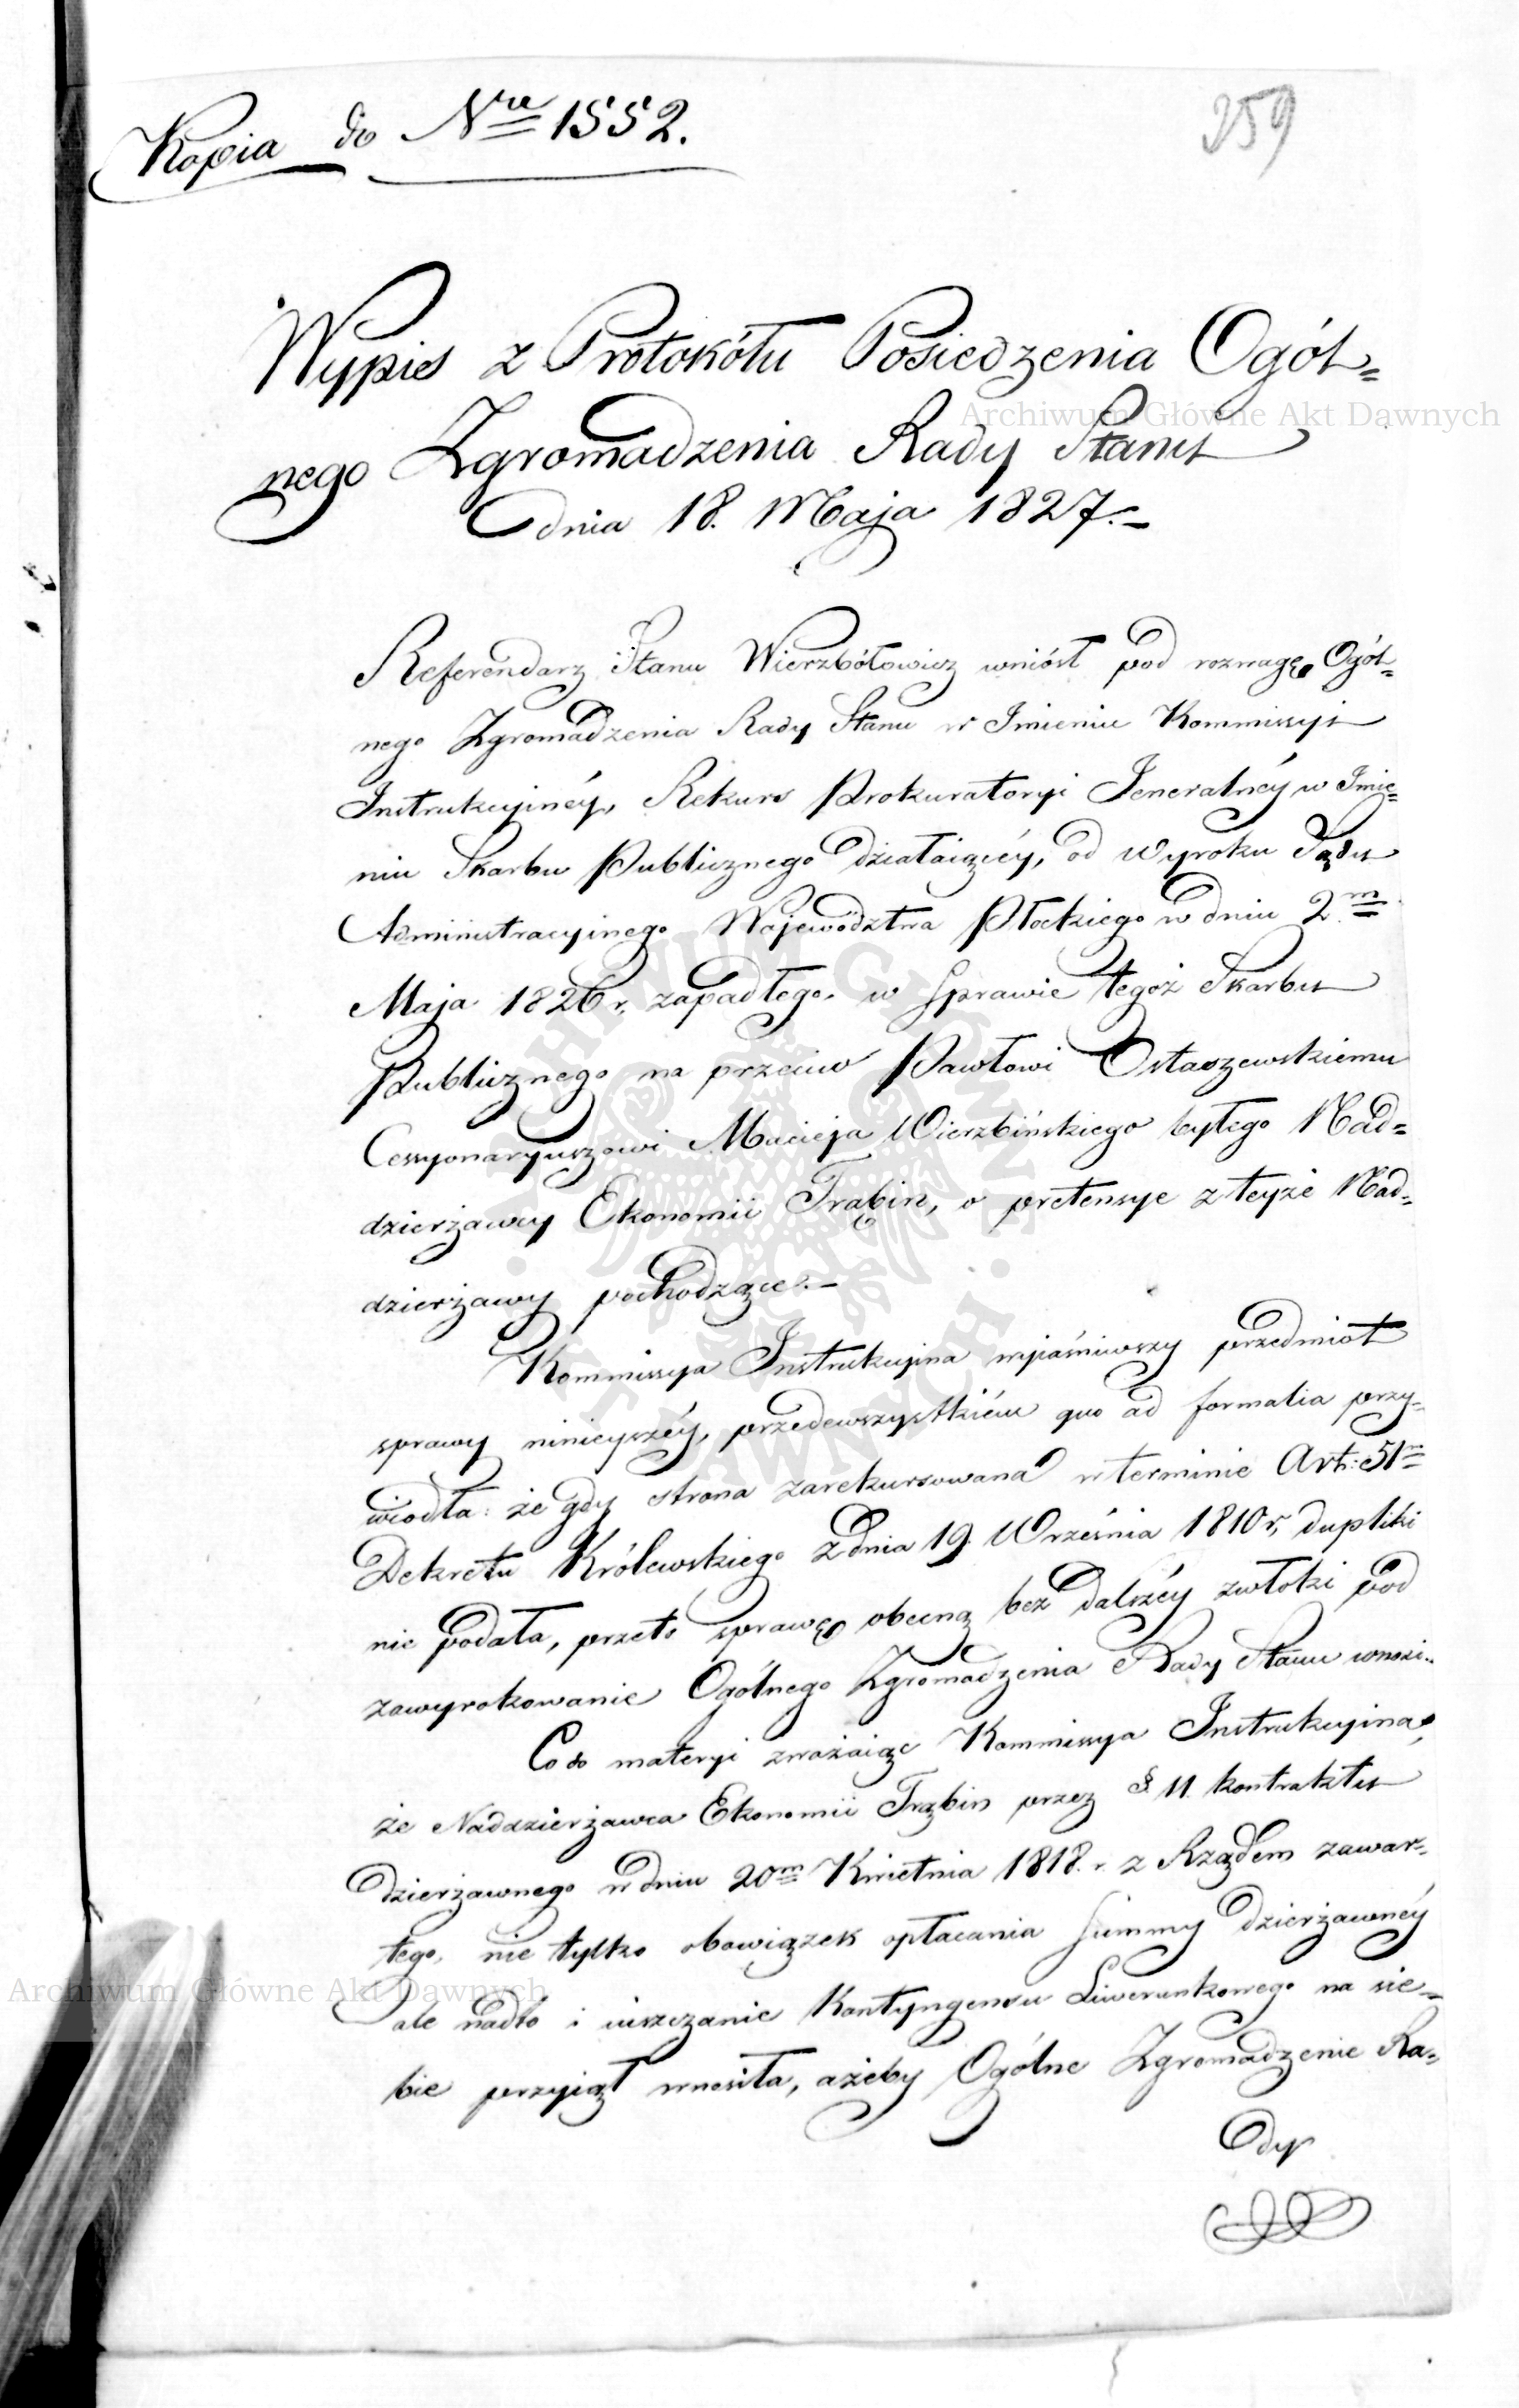 Kopia do Nre 1552.
259
Wypis z Protokółu Posiedzenia Ogól=
nego Zgromadzenia Rady Stanu
dnia 18. Maja 1827.–
Referendarz Stanu Wierzbółowicz wniósł pod rozwagę Ogól=
nego Zgromadzenia Rady Stanu w Imieniu Kommissyi
Instrukcyinéy, Rekurs Prokuratoryi Jeneralnéy w Imie=
niu Skarbu Publicznego działaiącéy, od Wyroku Sądu
Administracyinego Województwa Płockiego w dniu 2m
Maja 1826 r. zapadłego, w sprawie tegoż Skarbu
Publicznego na przeciw Pawłowi Ostaszewskiemu
Cessyonaryuszowi Macieja Wierzbińskiego byłego Nad=
dzierżawcy Ekonomii Trąbin, o pretensye z teyże Nad=
dzierżawy pochodzące.–
Kommissya Instrukcyina wyjaśniwszy przedmiot
sprawy ninieyszéy, przedewszystkiém quo ad formalia przy=
wiodła: że gdy strona zarekursowana w terminie Art: 51m
Dekretu Królewskiego z dnia 19. Września 1810 r, dupliki
nie podała, przeto sprawę obecną bez dalszéy zwłoki pod
zawyrokowanie Ogólnego Zgromadzenia Rady Stanu wnosi.
Co do materyi zważaiąc Kommissya Instrukcyina,
że Naddzierżawca Ekonomii Trąbin przez § 11. kontraktu
dzierżawnego w dniu 20m Kwietnia 1818. r. z Rządem zawar=
tego, nie tylko obowiązek opłacania summy dzierżawnéy
ale nadto i uiszczanie Kontyngensu Liwerunkowego na sie=
bie przyiął wnosiła, ażeby Ogólne Zgromadzenie Ra=
dy
Archiwum Główne Akt Dawnych
Archiwum Główne Akt Dawnych
ARCHIWUM GŁÓWNE AKT DAWNYCH